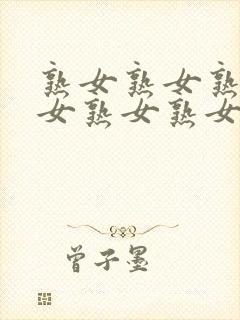 熟女熟女熟
女熟女熟女
曾子墨